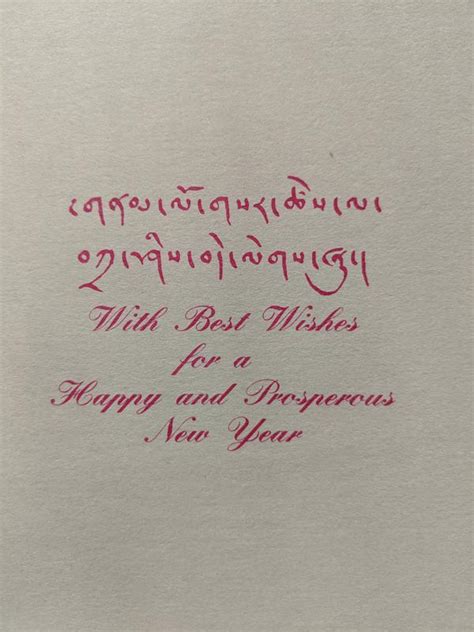 ལོ་གསར་ཚེས་ལ་
བཀྲ་ཤིས་བདེ་ལེགས་ཞུ།།
With Best Wishes
for a
Happy and Prosperous
New Year